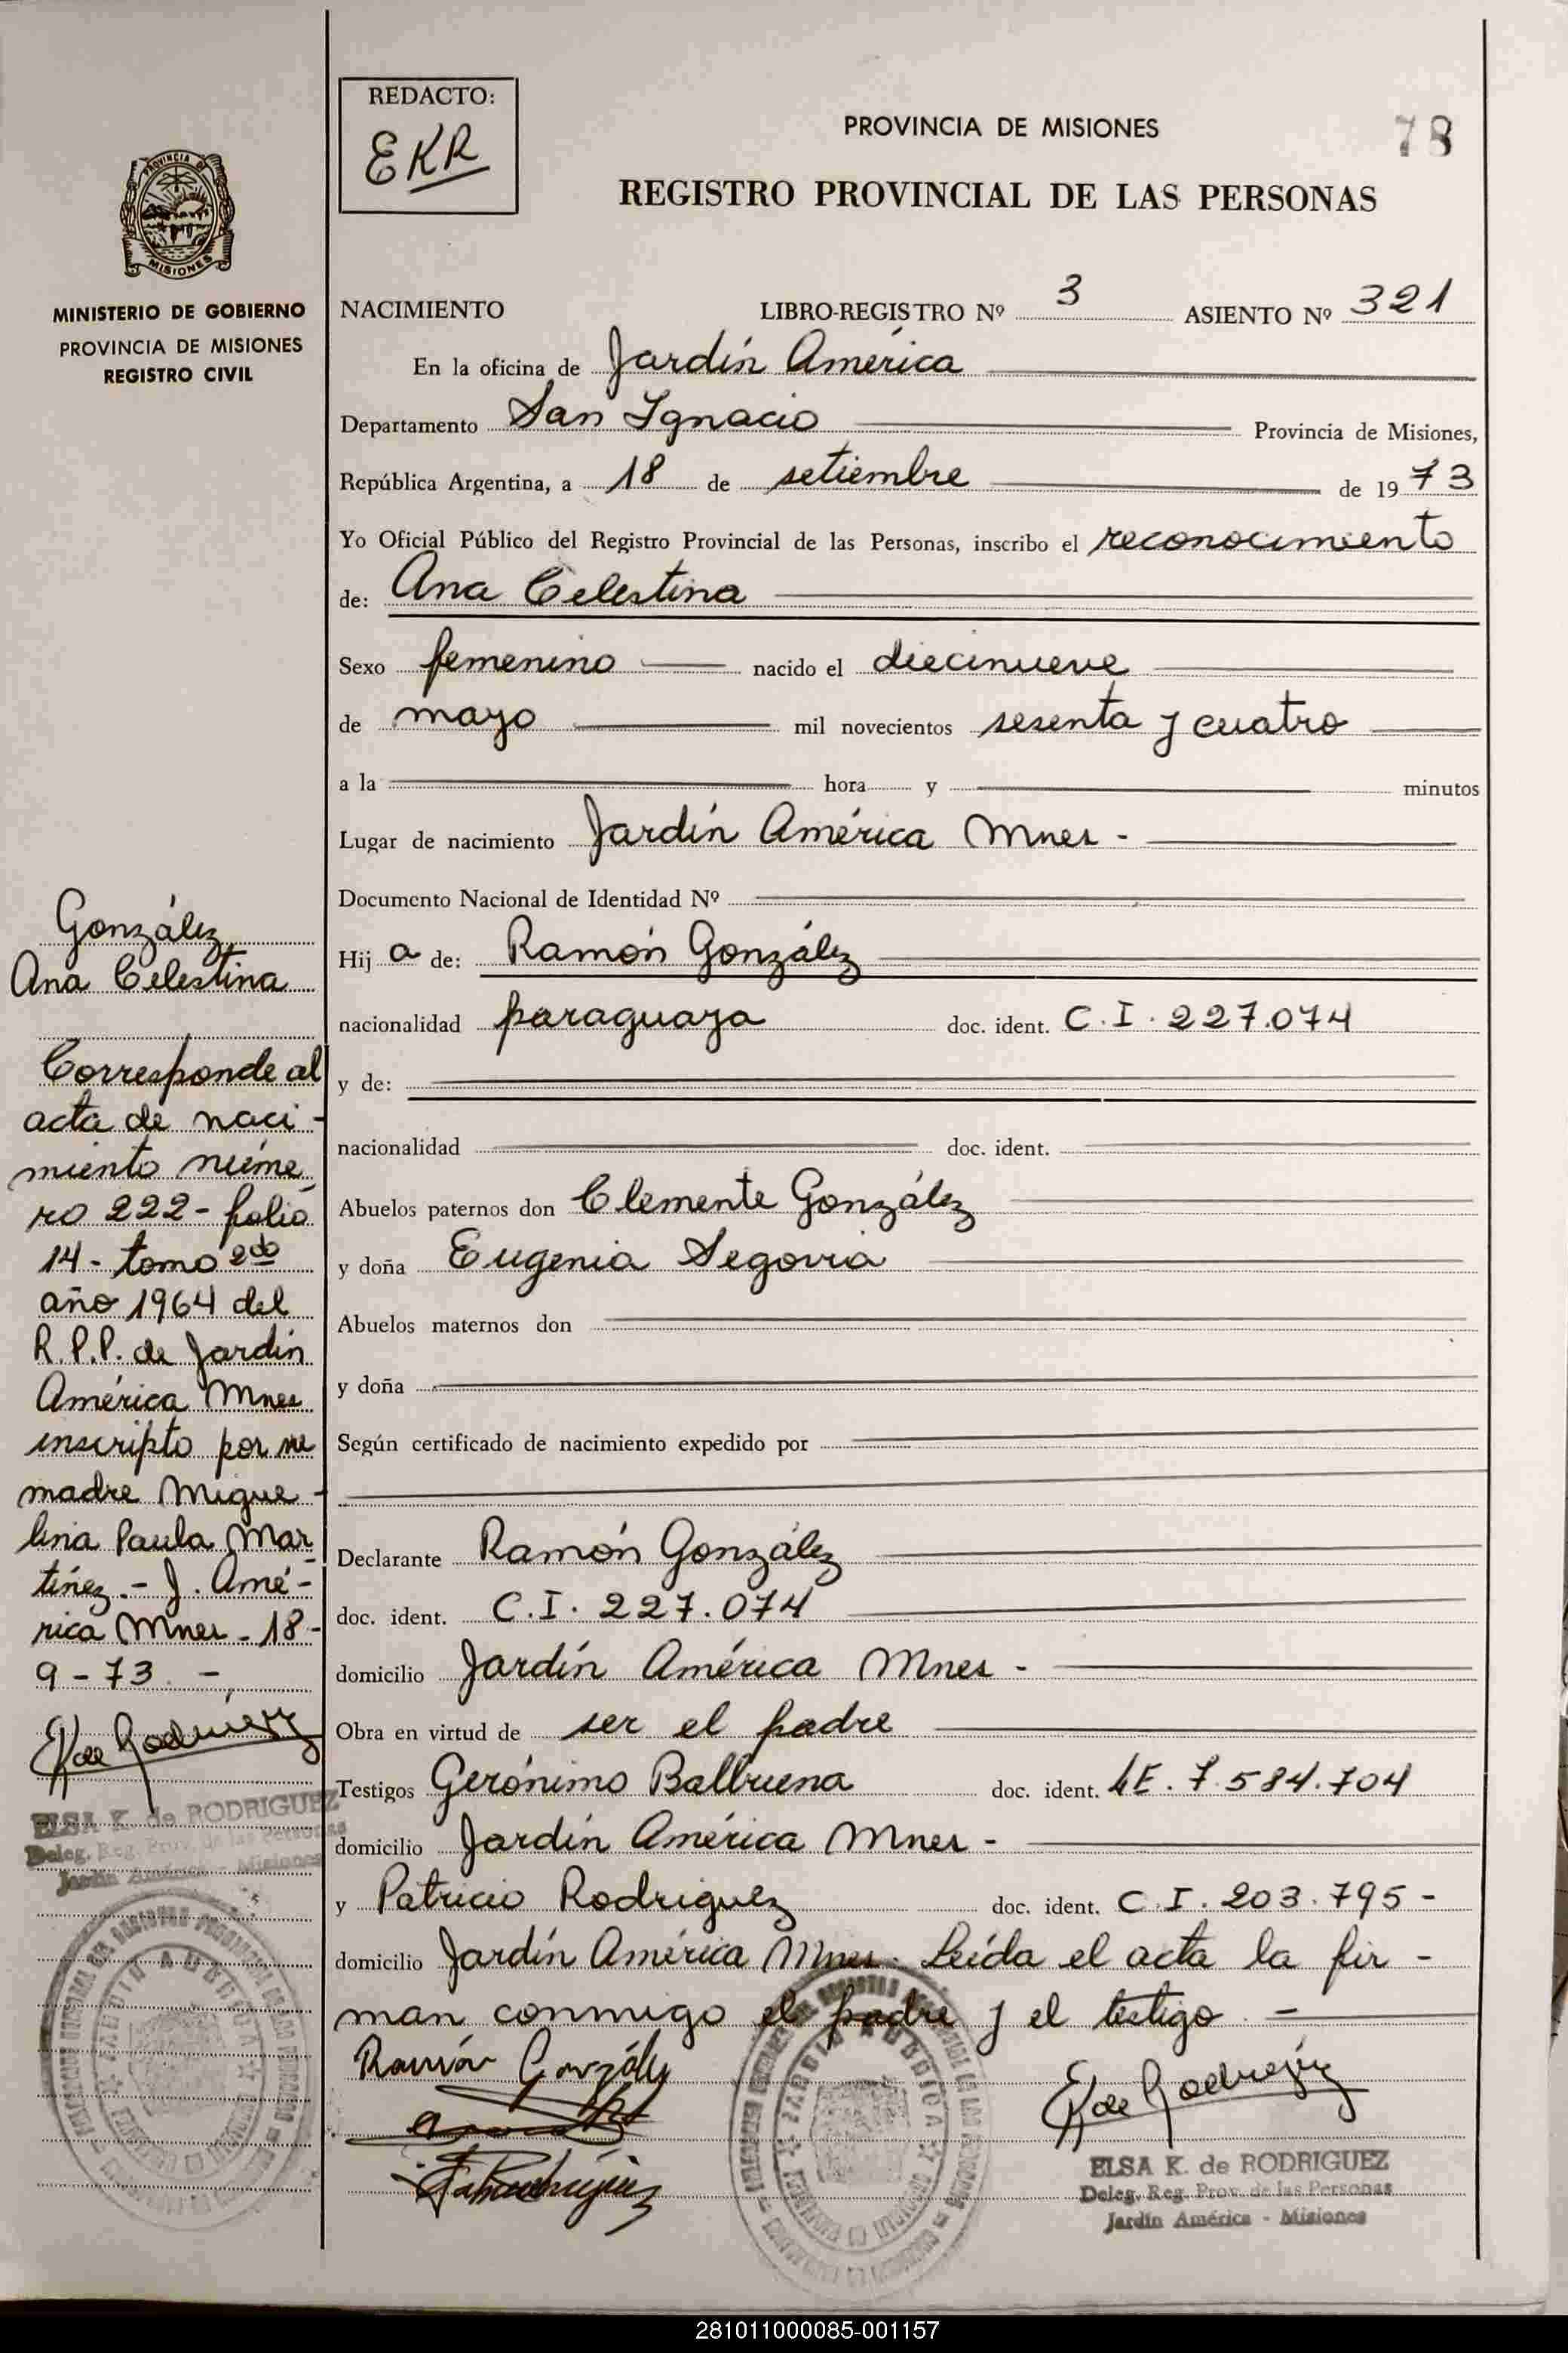 REDACTO:
EKR
PROVINCIA DE MISIONES
78
REGISTRO PROVINCIAL DE LAS PERSONAS
PROVINCIA DE
MISIONES
MINISTERIO DE GOBIERNO
PROVINCIA DE MISIONES
REGISTRO CIVIL
NACIMIENTO LIBRO-REGISTRO Nº 3 ASIENTO Nº 321
En la oficina de Jardín América
Departamento San Ignacio Provincia de Misiones,
República Argentina, a 18 de setiembre de 1973
Yo Oficial Público del Registro Provincial de las Personas, inscribo el reconocimiento
de: Ana Celestina
Sexo femenino nacido el diecinueve
de mayo mil novecientos sesenta y cuatro
a la hora y minutos
Lugar de nacimiento Jardín América Mnes -
Documento Nacional de Identidad Nº
Hij a de: Ramón González
nacionalidad paraguaya doc. ident. C.I. 227.074
y de:
nacionalidad doc. ident.
Abuelos paternos don Clemente González
y doña Eugenia Segovia
Abuelos maternos don
y doña
Según certificado de nacimiento expedido por
Declarante Ramón González
doc. ident. C.I. 227.074
domicilio Jardín América Mnes -
Obra en virtud de ser el padre
Testigos Gerónimo Balbuena doc. ident. LE. 7.584.704
domicilio Jardín América Mnes -
y Patricio Rodriguez doc. ident. C.I. 203.795 -
domicilio Jardín América Mnes. Leída el acta la fir -
man conmigo el padre y el testigo. -
Ramón González
EK de Rodriguez
ELSA K. de RODRIGUEZ
Deleg. Reg. Prov. de las Personas
Jardín América - Misiones
González
Ana Celestina
Corresponde al
acta de naci -
miento núme
ro 222 - folio
14 - tomo 2do
año 1964 del
R.P.P. de Jardín
América Mnes
inscripto por su
madre Migue -
lina Paula Mar
tínez. - J. Amé -
rica Mnes - 18 -
9 - 73. -
EK de Rodriguez
ELSA K. de RODRIGUEZ
Deleg. Reg. Prov. de las Personas
Jardín América - Misiones
281011000085-001157